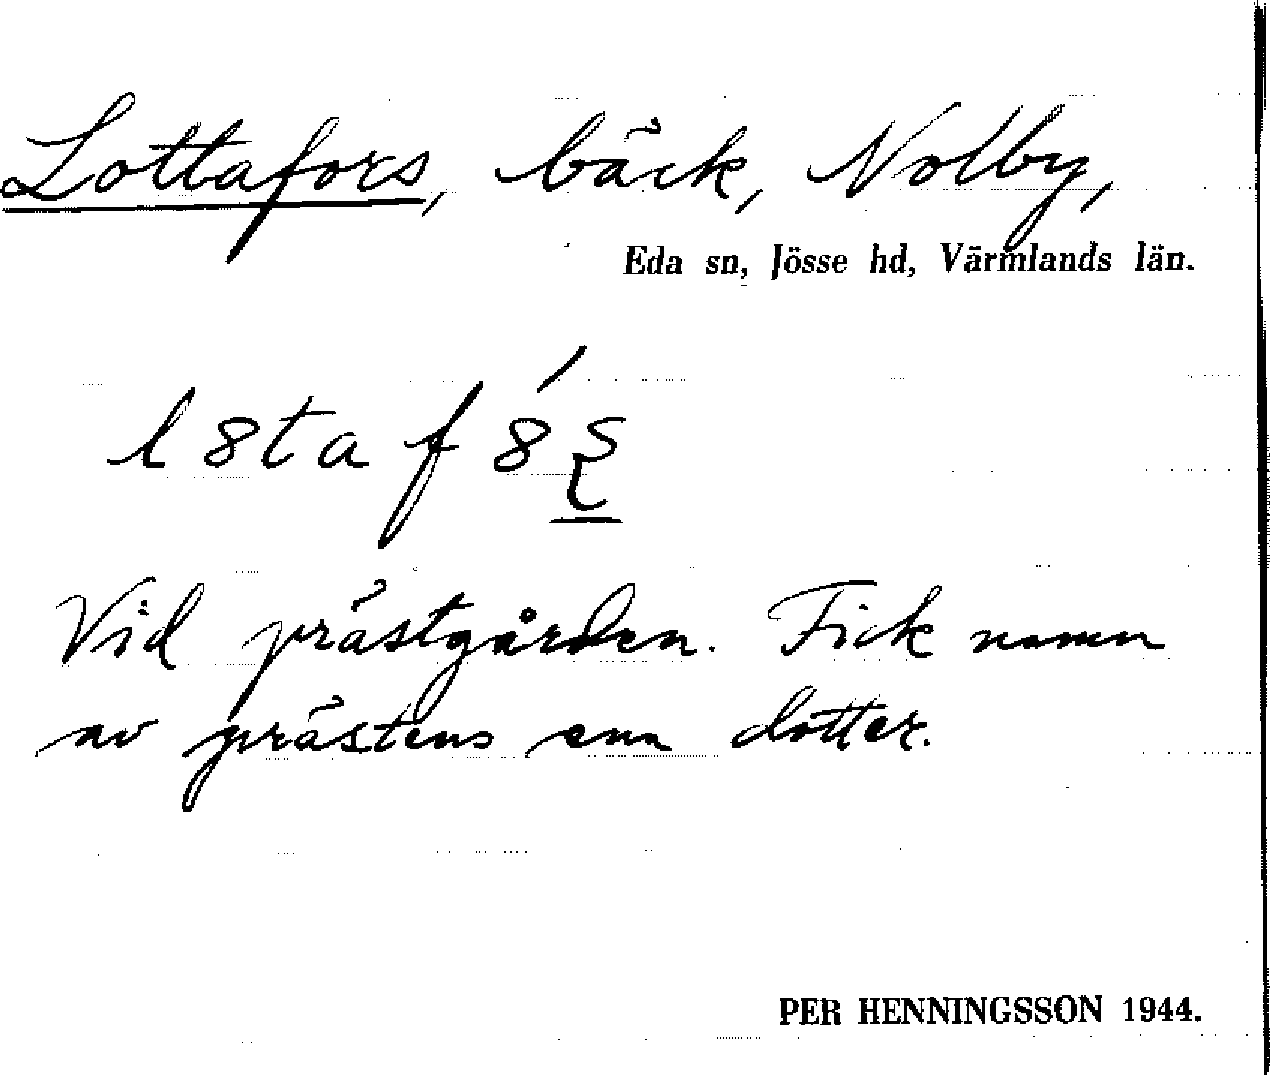 Lottafors, bäck, Nolby,
Eda sn, Jösse hd, Värmlands län.
l8taf8́ʂ
Vid prästgården. Fick namn
av prästens ena dotter.
PER HENNINGSSON 1944.